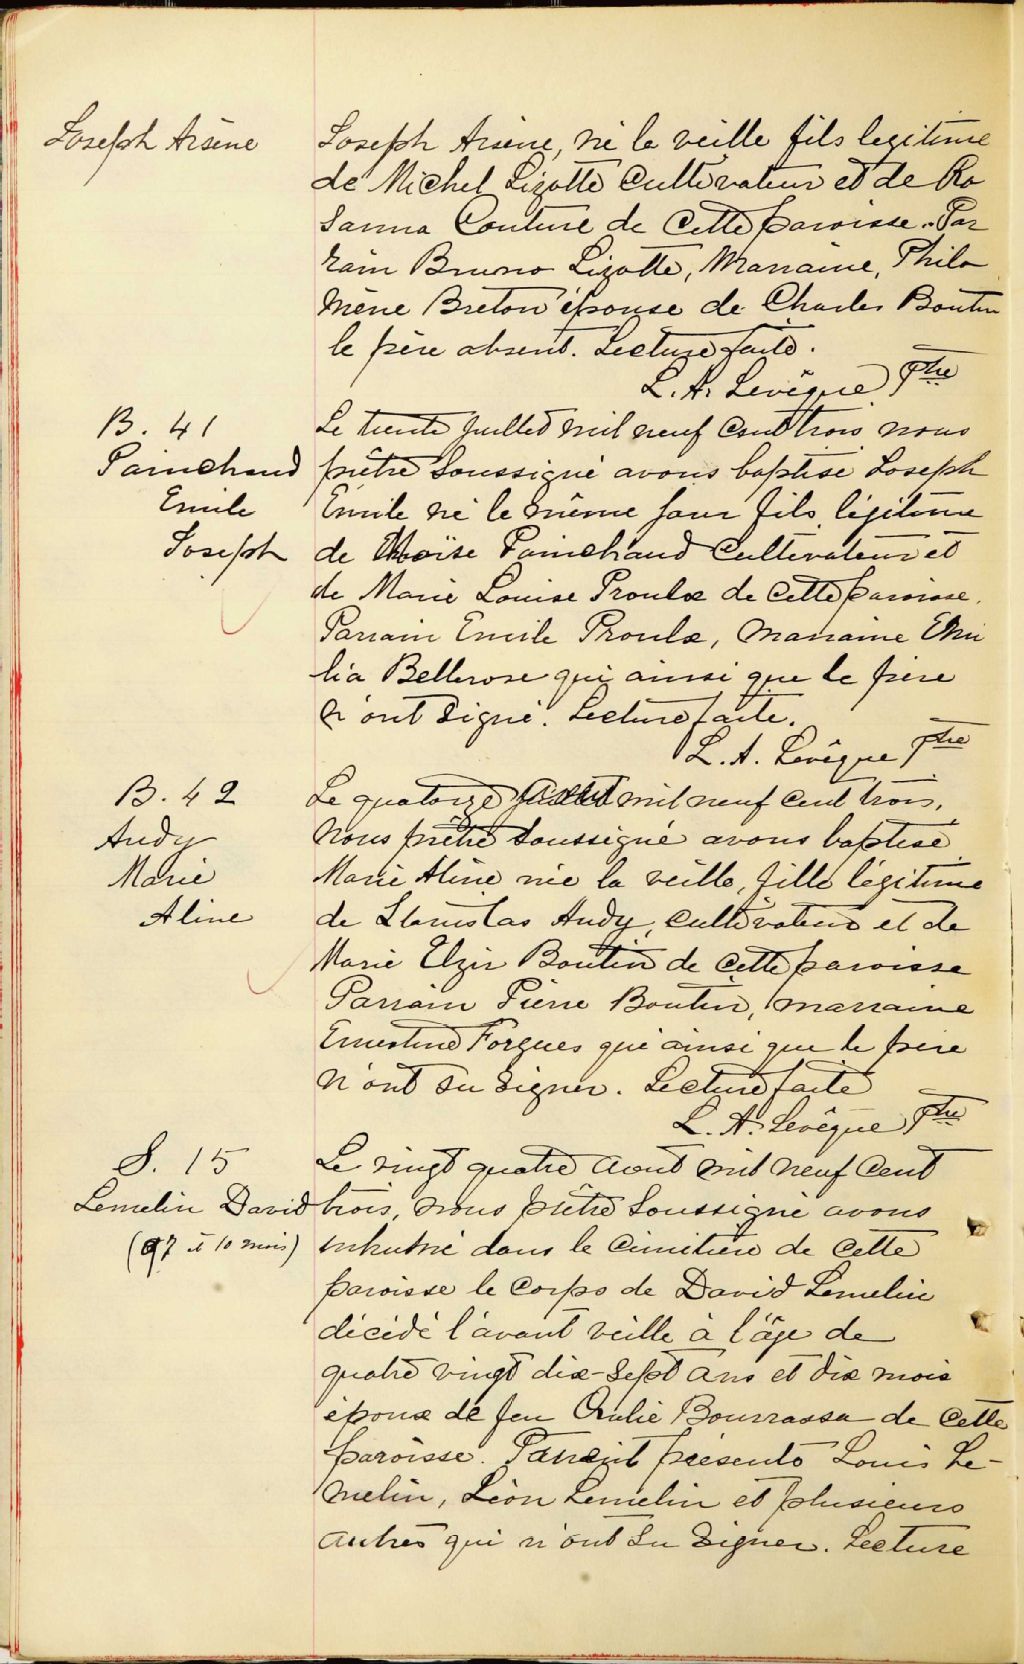 Joseph Arsène
Joseph Arsène, né la veille fils legitime
de Michel Lizotte Cultivateur et de Ro
sanna Couture de Cette paroisse. Par
rain Bruno Lizotte, Marraine, Philo
mène Breton épouse de Charles Boutin
le père absent. Lecture faite.
L. A. Levêque Ptre
B. 41
Painchaud
Emile
Joseph
Le trente Juillet mil neuf Cent trois nous
prêtre Soussigné avons baptisé Joseph
Emile né le même jour fils légitime
de Moïse Painchaud Cultivateur et
de Marie Louise Proulx de Cette paroisse.
Parrain Emile Proulx, marraine Emi
lia Bellerose qui ainsi que le père
n'ont Signé. Lecture faite.
L. A. Levêque Ptre
B. 42
Audy
Marie
Aline
Le quatorze Aout mil neuf Cent trois,
Nous prêtre Soussigné avons baptisé
Marie Aline née la veille, fille légitime
de Stanislas Audy, cultivateur et de
Marie Elzir Boutin de Cette paroisse
Parrain Pierre Boutin, marraine
Ernestine Forgues qui ainsi que le père
n'ont su signer. Lecture faite
L. A. Levêque Ptre
S. 15
Lemelin David
(97 et 10 mois)
Le vingt quatre Aout mil neuf Cent
trois, nous prêtre Soussigné avons
inhumé dans le Cimitière de Cette
paroisse le Corps de David Lemelin
décédé l'avant veille à l'âge de
quatre vingt dix-Sept Ans et dix mois
époux de feu Bourrassa de Cette
paroisse. présents Louis Le-
melin, Léon Lemelin et plusieurs
autres qui n'ont Su Signer. Lecture